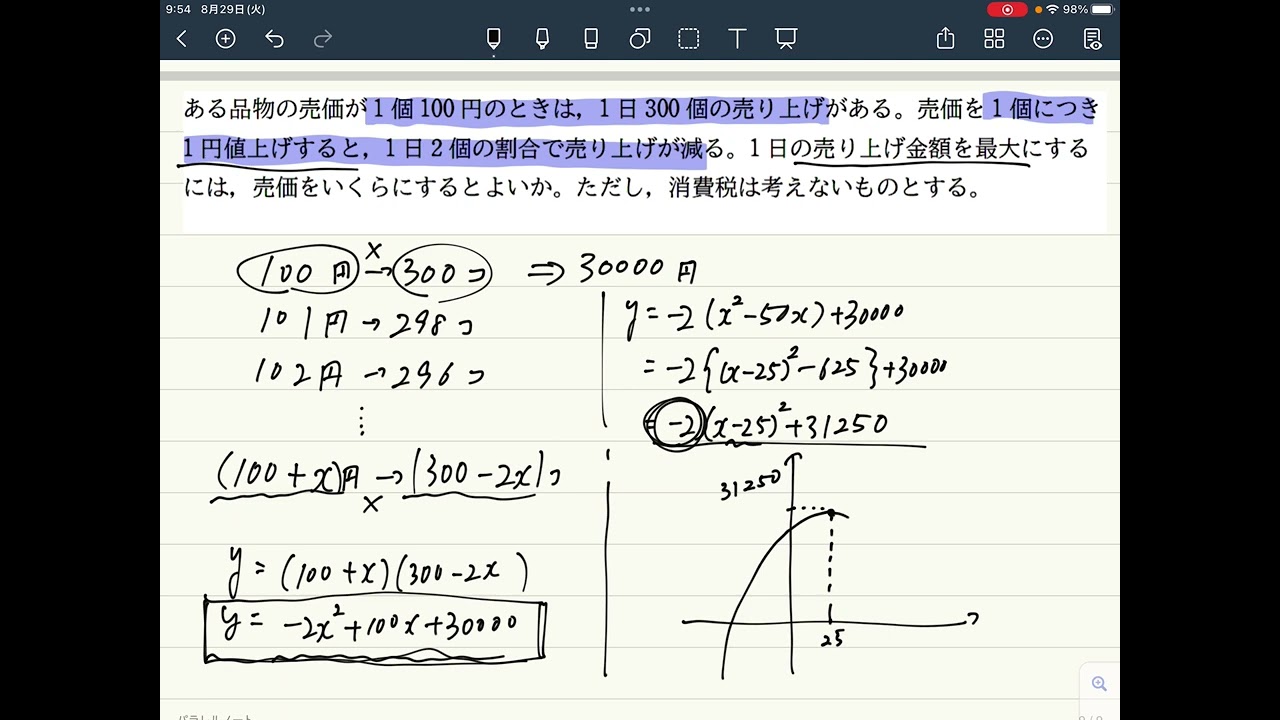 9:54 8月29日(火)
98%
ある品物の売価が1個100円のときは，1日300個の売り上げがある。売価を1個につき
1円値上げすると，1日2個の割合で売り上げが減る。1日の売り上げ金額を最大にする
には，売価をいくらにするとよいか。ただし，消費税は考えないものとする。
100円 × → 300コ ⇒ 30000円
101円 → 298コ
102円 → 296コ
⋮
(100+x)円 × → (300-2x)コ
y = (100+x)(300-2x)
y = -2x²+100x+30000
y = -2(x²-50x)+30000
= -2{(x-25)²-625}+30000
= -2(x-25)²+31250
31250
25